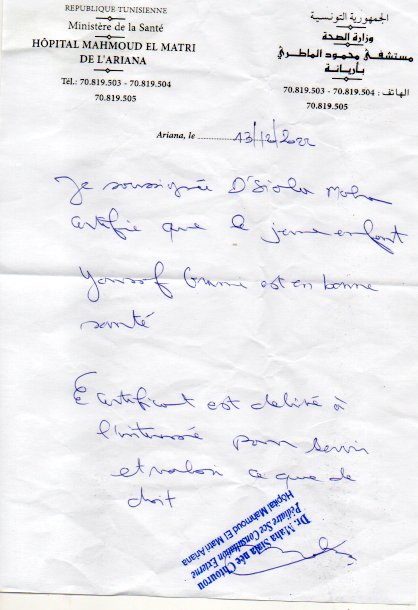 REPUBLIQUE TUNISIENNE
Ministère de la Santé
HÔPITAL MAHMOUD EL MATRI
DE L'ARIANA
Tél.: 70.819.503 - 70.819.504
70.819.505
الجمهورية التونسية
وزارة الصحة
مستشفى محمود الماطري
بأريانة
الهاتف : 70.819.504 - 70.819.503
70.819.505
Ariana, le 13/12/2022
Je soussignée Dr Siala Maha
certifie que le jeune enfant
Youssef est en bonne
santé
Ce certificat est délivré à
l'intéressé pour servir
et valoir ce que de
droit
Dr. Maha Siala née Chtourou
Pédiatre Sce Consultation Externe
Hôpital Mahmoud El Matri Ariana